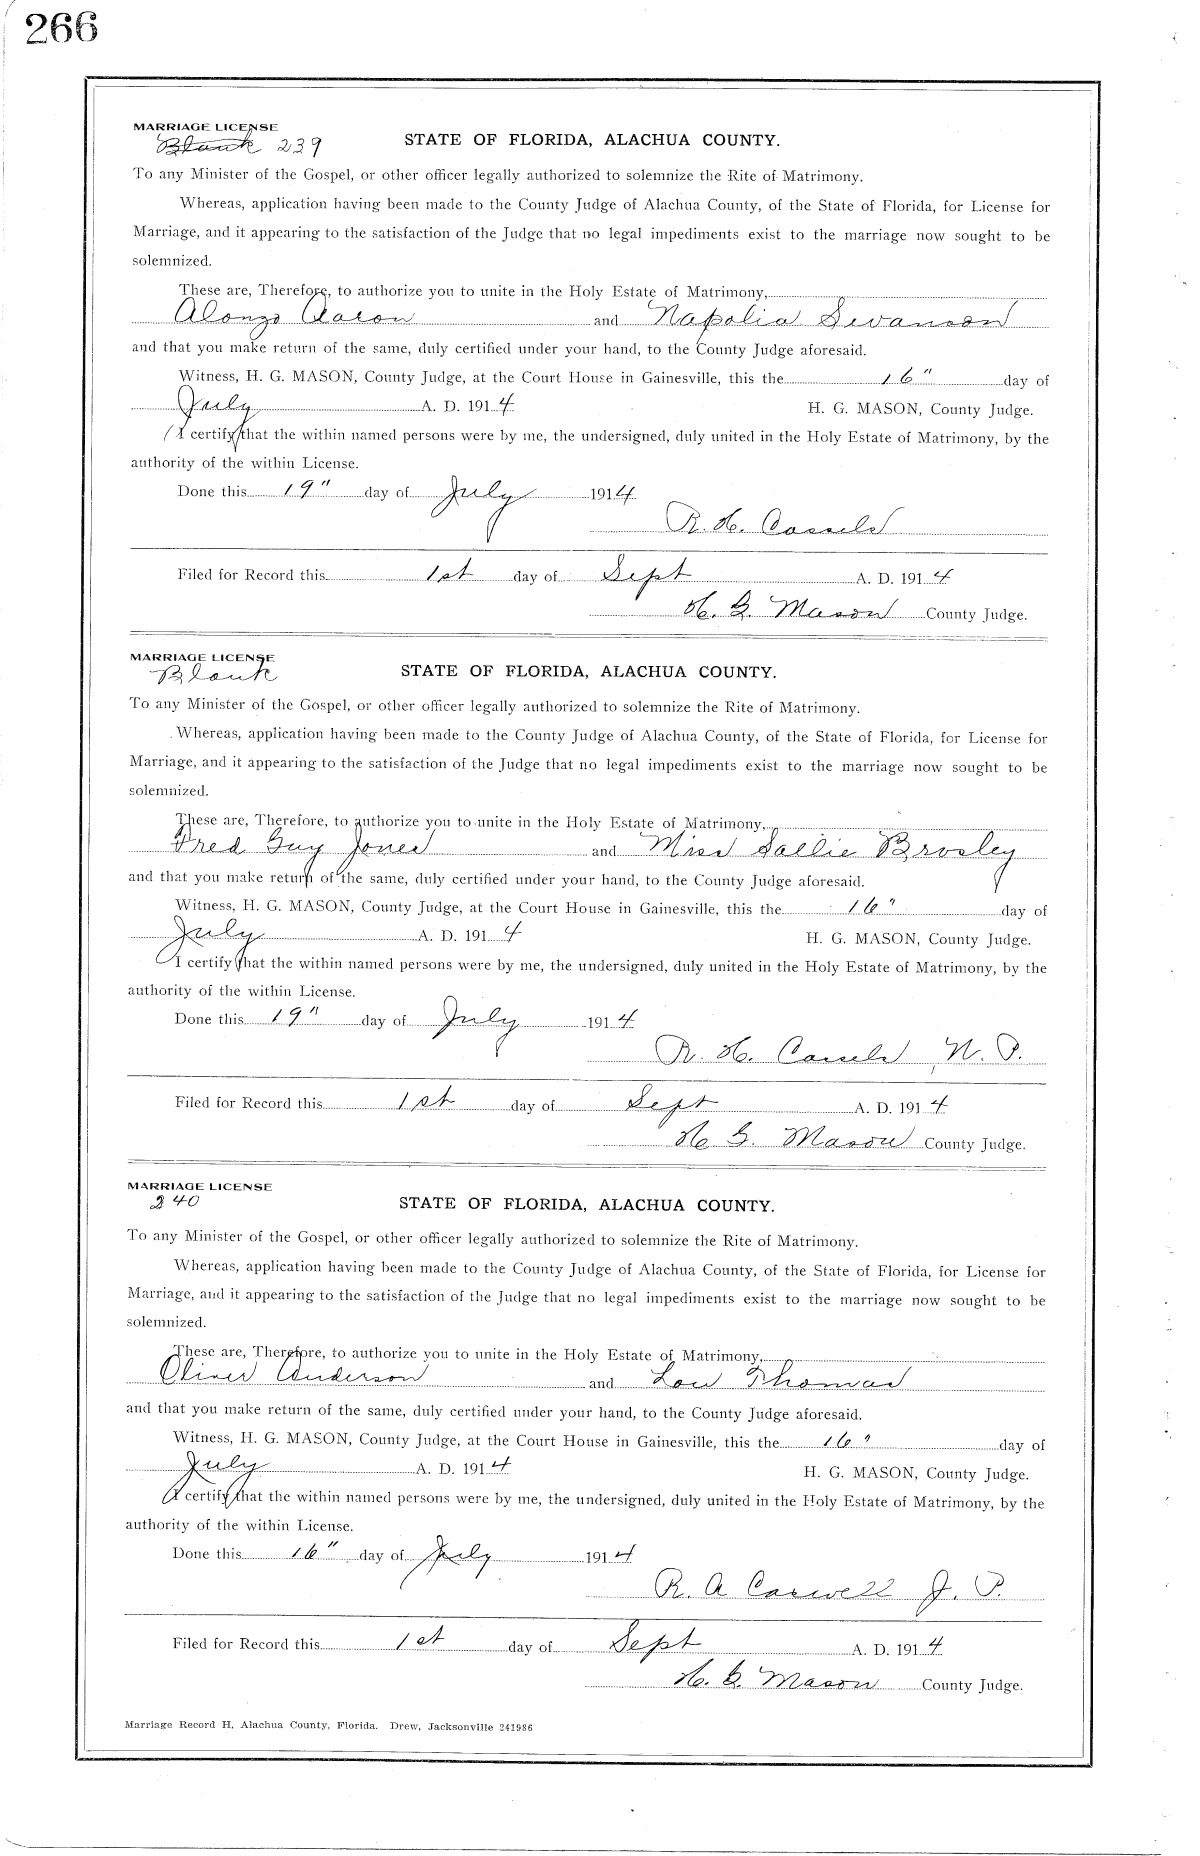 266
MARRIAGE LICENSE
Blank 239
STATE OF FLORIDA, ALACHUA COUNTY.
To any Minister of the Gospel, or other officer legally authorized to solemnize the Rite of Matrimony.
Whereas, application having been made to the County Judge of Alachua County, of the State of Florida, for License for
Marriage, and it appearing to the satisfaction of the Judge that no legal impediments exist to the marriage now sought to be
solemnized.
These are, Therefore, to authorize you to unite in the Holy Estate of Matrimony,
Alongo Aaron and Napolia Swanson
and that you make return of the same, duly certified under your hand, to the County Judge aforesaid.
Witness, H. G. MASON, County Judge, at the Court House in Gainesville, this the 16" day of
July A. D. 1914 H. G. MASON, County Judge.
I certify that the within named persons were by me, the undersigned, duly united in the Holy Estate of Matrimony, by the
authority of the within License.
Done this 19" day of July 1914
R. H. Cassels
Filed for Record this 1st day of Sept A. D. 1914
H. G. Mason County Judge.
MARRIAGE LICENSE
Blank
STATE OF FLORIDA, ALACHUA COUNTY.
To any Minister of the Gospel, or other officer legally authorized to solemnize the Rite of Matrimony.
Whereas, application having been made to the County Judge of Alachua County, of the State of Florida, for License for
Marriage, and it appearing to the satisfaction of the Judge that no legal impediments exist to the marriage now sought to be
solemnized.
These are, Therefore, to authorize you to unite in the Holy Estate of Matrimony,
Fred Guy Jones and Miss Sallie Brosley
and that you make return of the same, duly certified under your hand, to the County Judge aforesaid.
Witness, H. G. MASON, County Judge, at the Court House in Gainesville, this the 16" day of
July A. D. 1914 H. G. MASON, County Judge.
I certify that the within named persons were by me, the undersigned, duly united in the Holy Estate of Matrimony, by the
authority of the within License.
Done this 19" day of July 1914
R. H. Cassels N. P.
Filed for Record this 1st day of Sept A. D. 1914
H G. Mason County Judge.
MARRIAGE LICENSE
240
STATE OF FLORIDA, ALACHUA COUNTY.
To any Minister of the Gospel, or other officer legally authorized to solemnize the Rite of Matrimony.
Whereas, application having been made to the County Judge of Alachua County, of the State of Florida, for License for
Marriage, and it appearing to the satisfaction of the Judge that no legal impediments exist to the marriage now sought to be
solemnized.
These are, Therefore, to authorize you to unite in the Holy Estate of Matrimony,
Oliver Anderson and Lou Thomas
and that you make return of the same, duly certified under your hand, to the County Judge aforesaid.
Witness, H. G. MASON, County Judge, at the Court House in Gainesville, this the 16" day of
July A. D. 1914 H. G. MASON, County Judge.
I certify that the within named persons were by me, the undersigned, duly united in the Holy Estate of Matrimony, by the
authority of the within License.
Done this 16" day of July 1914
R. A Carwell J. P.
Filed for Record this 1st day of Sept A. D. 1914
H. G. Mason County Judge.
Marriage Record H, Alachua County, Florida. Drew, Jacksonville 241986